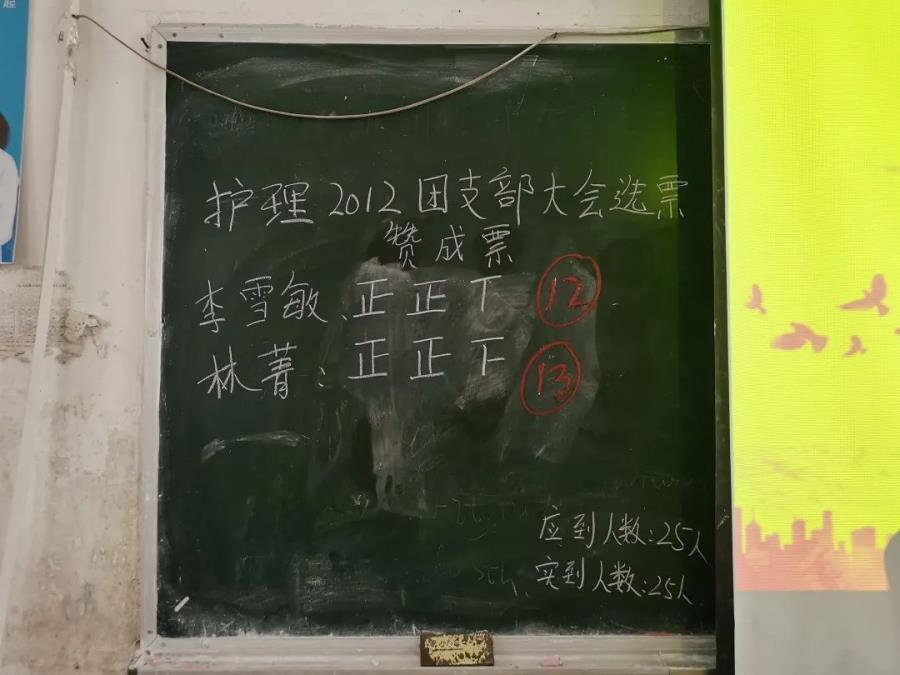 护理2012团支部大会选票
赞成票
李雪敏、正正丅 12
林菁：正正下 13
应到人数:25人
实到人数:25人